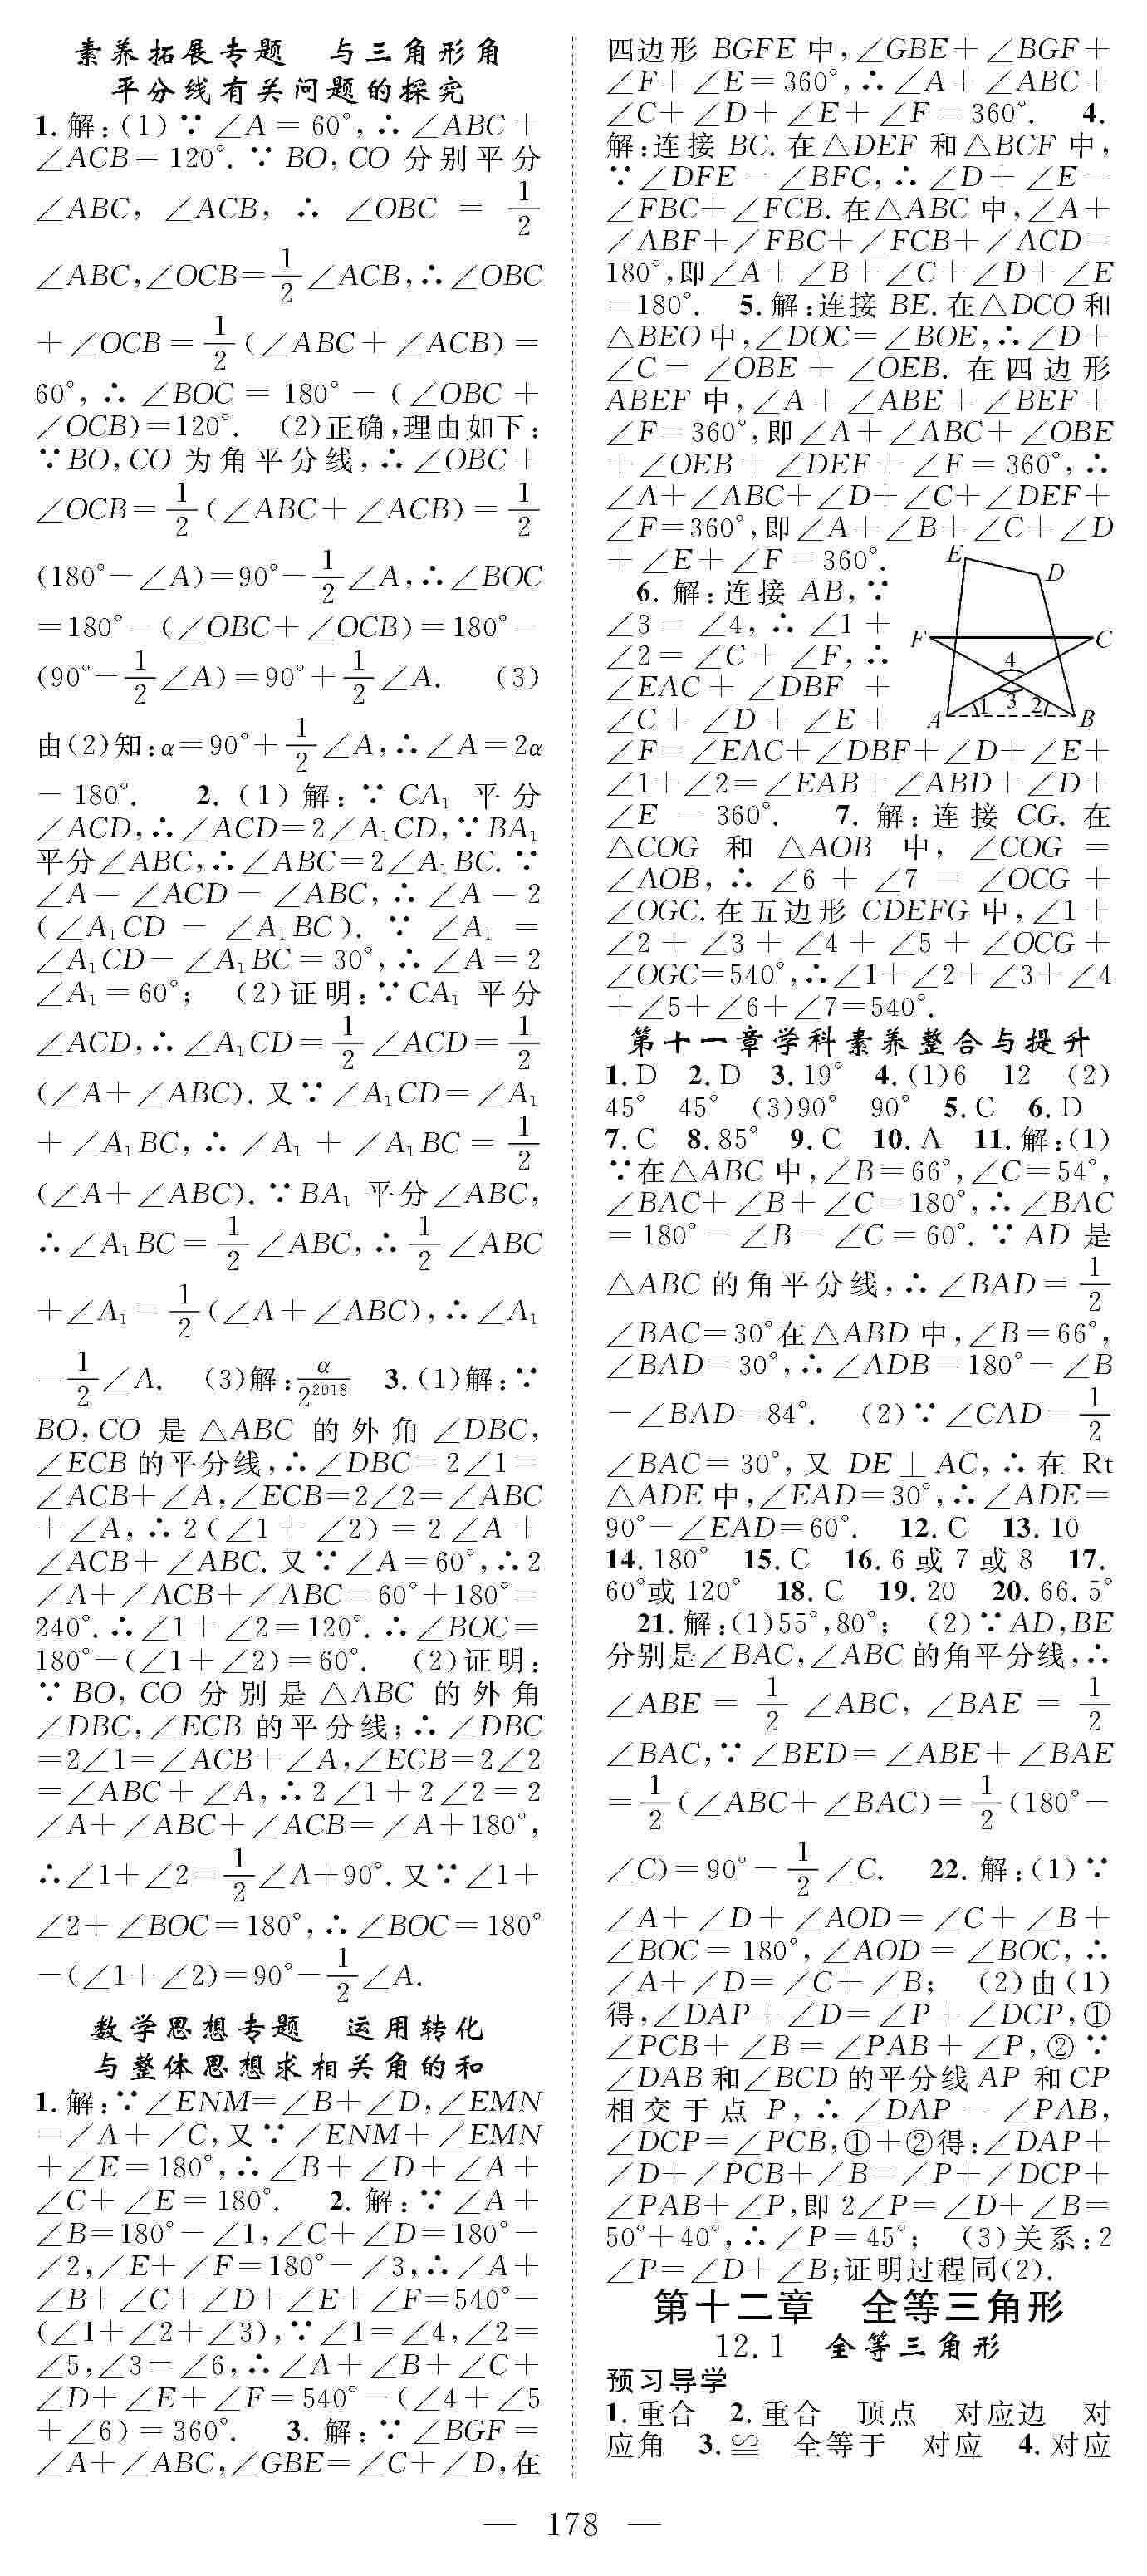 素养拓展专题　与三角形角
平分线有关问题的探究
1.解:(1)∵∠A=60°,∴∠ABC+
∠ACB=120°.∵BO,CO 分别平分
∠ABC,∠ACB,∴∠OBC=1/2
∠ABC,∠OCB=1/2∠ACB,∴∠OBC
+∠OCB=1/2(∠ABC+∠ACB)=
60°,∴∠BOC=180°-(∠OBC+
∠OCB)=120°.　(2)正确,理由如下:
∵BO,CO 为角平分线,∴∠OBC+
∠OCB=1/2(∠ABC+∠ACB)=1/2
(180°-∠A)=90°-1/2∠A,∴∠BOC
=180°-(∠OBC+∠OCB)=180°-
(90°-1/2∠A)=90°+1/2∠A.　(3)
由(2)知:α=90°+1/2∠A,∴∠A=2α
-180°.　2.(1)解:∵CA₁ 平分
∠ACD,∴∠ACD=2∠A₁CD,∵BA₁
平分∠ABC,∴∠ABC=2∠A₁BC.∵
∠A=∠ACD-∠ABC,∴∠A=2
(∠A₁CD-∠A₁BC).∵∠A₁=
∠A₁CD-∠A₁BC=30°,∴∠A=2
∠A₁=60°;　(2)证明:∵CA₁ 平分
∠ACD,∴∠A₁CD=1/2∠ACD=1/2
(∠A+∠ABC).又∵∠A₁CD=∠A₁
+∠A₁BC,∴∠A₁+∠A₁BC=1/2
(∠A+∠ABC).∵BA₁ 平分∠ABC,
∴∠A₁BC=1/2∠ABC,∴1/2∠ABC
+∠A₁=1/2(∠A+∠ABC),∴∠A₁
=1/2∠A.　(3)解:α/2²⁰¹⁸　3.(1)解:∵
BO,CO 是△ABC 的外角∠DBC,
∠ECB的平分线,∴∠DBC=2∠1=
∠ACB+∠A,∠ECB=2∠2=∠ABC
+∠A,∴2(∠1+∠2)=2∠A+
∠ACB+∠ABC.又∵∠A=60°,∴2
∠A+∠ACB+∠ABC=60°+180°=
240°.∴∠1+∠2=120°.∴∠BOC=
180°-(∠1+∠2)=60°.　(2)证明:
∵BO,CO 分别是△ABC 的外角
∠DBC,∠ECB 的平分线;∴∠DBC
=2∠1=∠ACB+∠A,∠ECB=2∠2
=∠ABC+∠A,∴2∠1+2∠2=2
∠A+∠ABC+∠ACB=∠A+180°,
∴∠1+∠2=1/2∠A+90°.又∵∠1+
∠2+∠BOC=180°,∴∠BOC=180°
-(∠1+∠2)=90°-1/2∠A.
数学思想专题　运用转化
与整体思想求相关角的和
1.解:∵∠ENM=∠B+∠D,∠EMN
=∠A+∠C,又∵∠ENM+∠EMN
+∠E=180°,∴∠B+∠D+∠A+
∠C+∠E=180°.　2.解:∵∠A+
∠B=180°-∠1,∠C+∠D=180°-
∠2,∠E+∠F=180°-∠3,∴∠A+
∠B+∠C+∠D+∠E+∠F=540°-
(∠1+∠2+∠3),∵∠1=∠4,∠2=
∠5,∠3=∠6,∴∠A+∠B+∠C+
∠D+∠E+∠F=540°-(∠4+∠5
+∠6)=360°.　3.解:∵∠BGF=
∠A+∠ABC,∠GBE=∠C+∠D,在
四边形 BGFE 中,∠GBE+∠BGF+
∠F+∠E=360°,∴∠A+∠ABC+
∠C+∠D+∠E+∠F=360°.　4.
解:连接 BC.在△DEF 和△BCF 中,
∵∠DFE=∠BFC,∴∠D+∠E=
∠FBC+∠FCB.在△ABC 中,∠A+
∠ABF+∠FBC+∠FCB+∠ACD=
180°,即∠A+∠B+∠C+∠D+∠E
=180°.　5.解:连接 BE.在△DCO 和
△BEO 中,∠DOC=∠BOE,∴∠D+
∠C=∠OBE+∠OEB.在四边形
ABEF 中,∠A+∠ABE+∠BEF+
∠F=360°,即∠A+∠ABC+∠OBE
+∠OEB+∠DEF+∠F=360°,∴
∠A+∠ABC+∠D+∠C+∠DEF+
∠F=360°,即∠A+∠B+∠C+∠D
+∠E+∠F=360°.
6.解:连接 AB,∵
∠3=∠4,∴∠1+
∠2=∠C+∠F,∴
∠EAC+∠DBF+
∠C+∠D+∠E+
E
D
F
C
4
3
1
2
A
B
∠F=∠EAC+∠DBF+∠D+∠E+
∠1+∠2=∠EAB+∠ABD+∠D+
∠E=360°.　7.解:连接 CG.在
△COG 和△AOB 中,∠COG=
∠AOB,∴∠6+∠7=∠OCG+
∠OGC.在五边形 CDEFG 中,∠1+
∠2+∠3+∠4+∠5+∠OCG+
∠OGC=540°,∴∠1+∠2+∠3+∠4
+∠5+∠6+∠7=540°.
第十一章学科素养整合与提升
1.D　2.D　3.19°　4.(1)6　12　(2)
45°　45°　(3)90°　90°　5.C　6.D
7.C　8.85°　9.C　10.A　11.解:(1)
∵在△ABC 中,∠B=66°,∠C=54°,
∠BAC+∠B+∠C=180°,∴∠BAC
=180°-∠B-∠C=60°.∵AD 是
△ABC 的角平分线,∴∠BAD=1/2
∠BAC=30°在△ABD 中,∠B=66°,
∠BAD=30°,∴∠ADB=180°-∠B
-∠BAD=84°.　(2)∵∠CAD=1/2
∠BAC=30°,又 DE⊥AC,∴在 Rt
△ADE 中,∠EAD=30°,∴∠ADE=
90°-∠EAD=60°.　12.C　13.10
14.180°　15.C　16.6 或 7 或 8　17.
60°或 120°　18.C　19.20　20.66.5°
21.解:(1)55°,80°;　(2)∵AD,BE
分别是∠BAC,∠ABC 的角平分线,∴
∠ABE=1/2∠ABC,∠BAE=1/2
∠BAC,∵∠BED=∠ABE+∠BAE
=1/2(∠ABC+∠BAC)=1/2(180°-
∠C)=90°-1/2∠C.　22.解:(1)∵
∠A+∠D+∠AOD=∠C+∠B+
∠BOC=180°,∠AOD=∠BOC,∴
∠A+∠D=∠C+∠B;　(2)由(1)
得,∠DAP+∠D=∠P+∠DCP,①
∠PCB+∠B=∠PAB+∠P,②∵
∠DAB 和∠BCD 的平分线 AP 和 CP
相交于点 P,∴∠DAP=∠PAB,
∠DCP=∠PCB,①+②得:∠DAP+
∠D+∠PCB+∠B=∠P+∠DCP+
∠PAB+∠P,即 2∠P=∠D+∠B=
50°+40°,∴∠P=45°;　(3)关系:2
∠P=∠D+∠B;证明过程同(2).
第十二章　全等三角形
12.1　全等三角形
预习导学
1.重合　2.重合　顶点　对应边　对
应角　3.≌　全等于　对应　4.对应
— 178 —